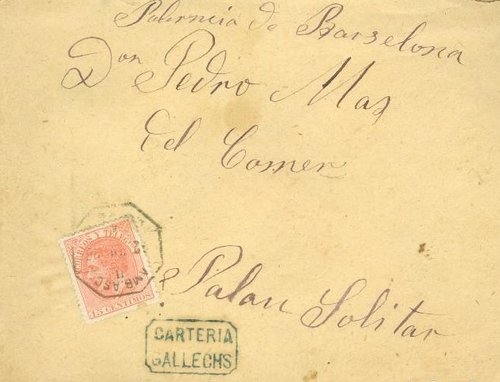 Palerncia de Barselona
Don Pedro Mas
del Comer
Palau Solitar
CORREOS Y TELEG
15 CENTIMOS
AMB. ASC
CARTERIA
GALLECHS